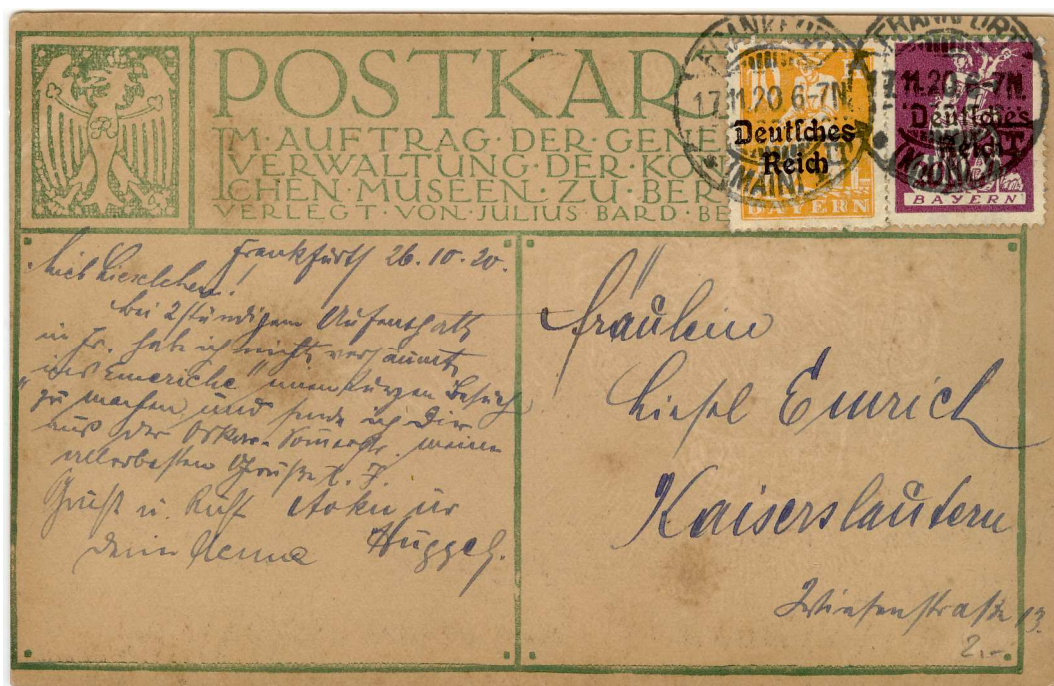 POSTKAR
IM·AUFTRAG·DER·GENE
VERWALTUNG·DER·KÖN
CHEN·MUSEEN·ZU·BER
VERLEGT·VON·JULIUS·BARD·BE
FRANKFURT
17.11.20.6-7N.
(MAIN)
10
Deutsches
Reich
BAYERN
FRANKFURT
17.11.20.6-7N
(MAIN)
Deutsches
Reich
BAYERN
Frankfurt 26.10.20.
Lieb Lieselchen!
Bei 2 stündigem Aufenthalt
in Fr. habe ich nicht versäumt
kurzen Besuch
zu machen und sende ich Dir
aus der Oskar-Sommerstr. meine
allerbesten Grüße
Gruß u. Kuß
Deine
Fräulein
Liesel Emrich
Kaiserslautern
Wiesenstraße 13.
2.-